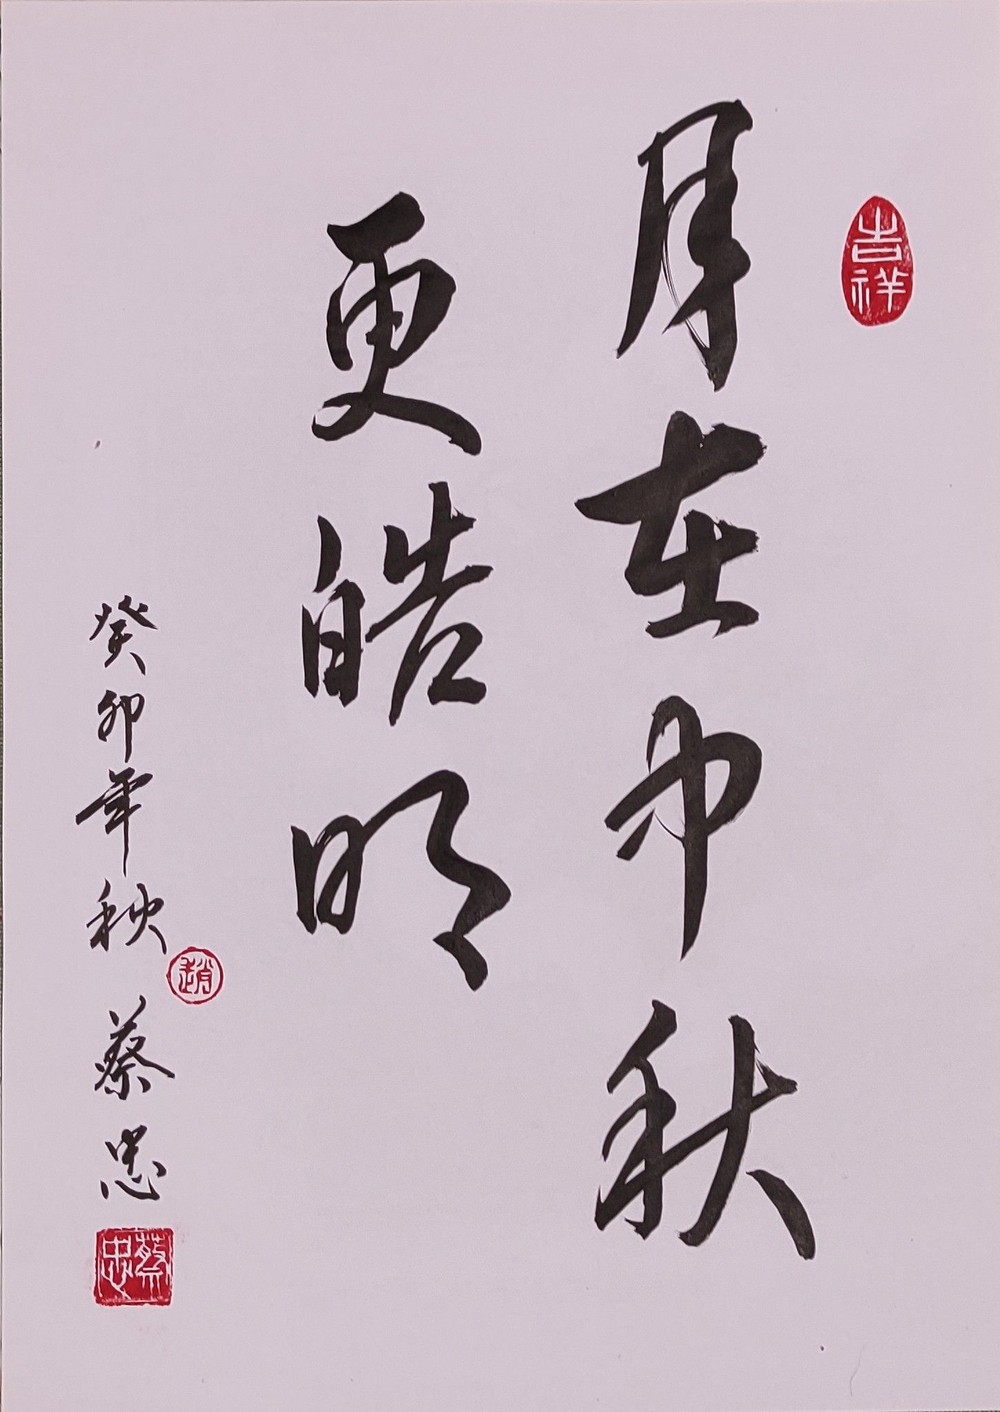 吉祥
月在中秋
更皓明
癸卯年秋
趙
蔡忠
蔡忠